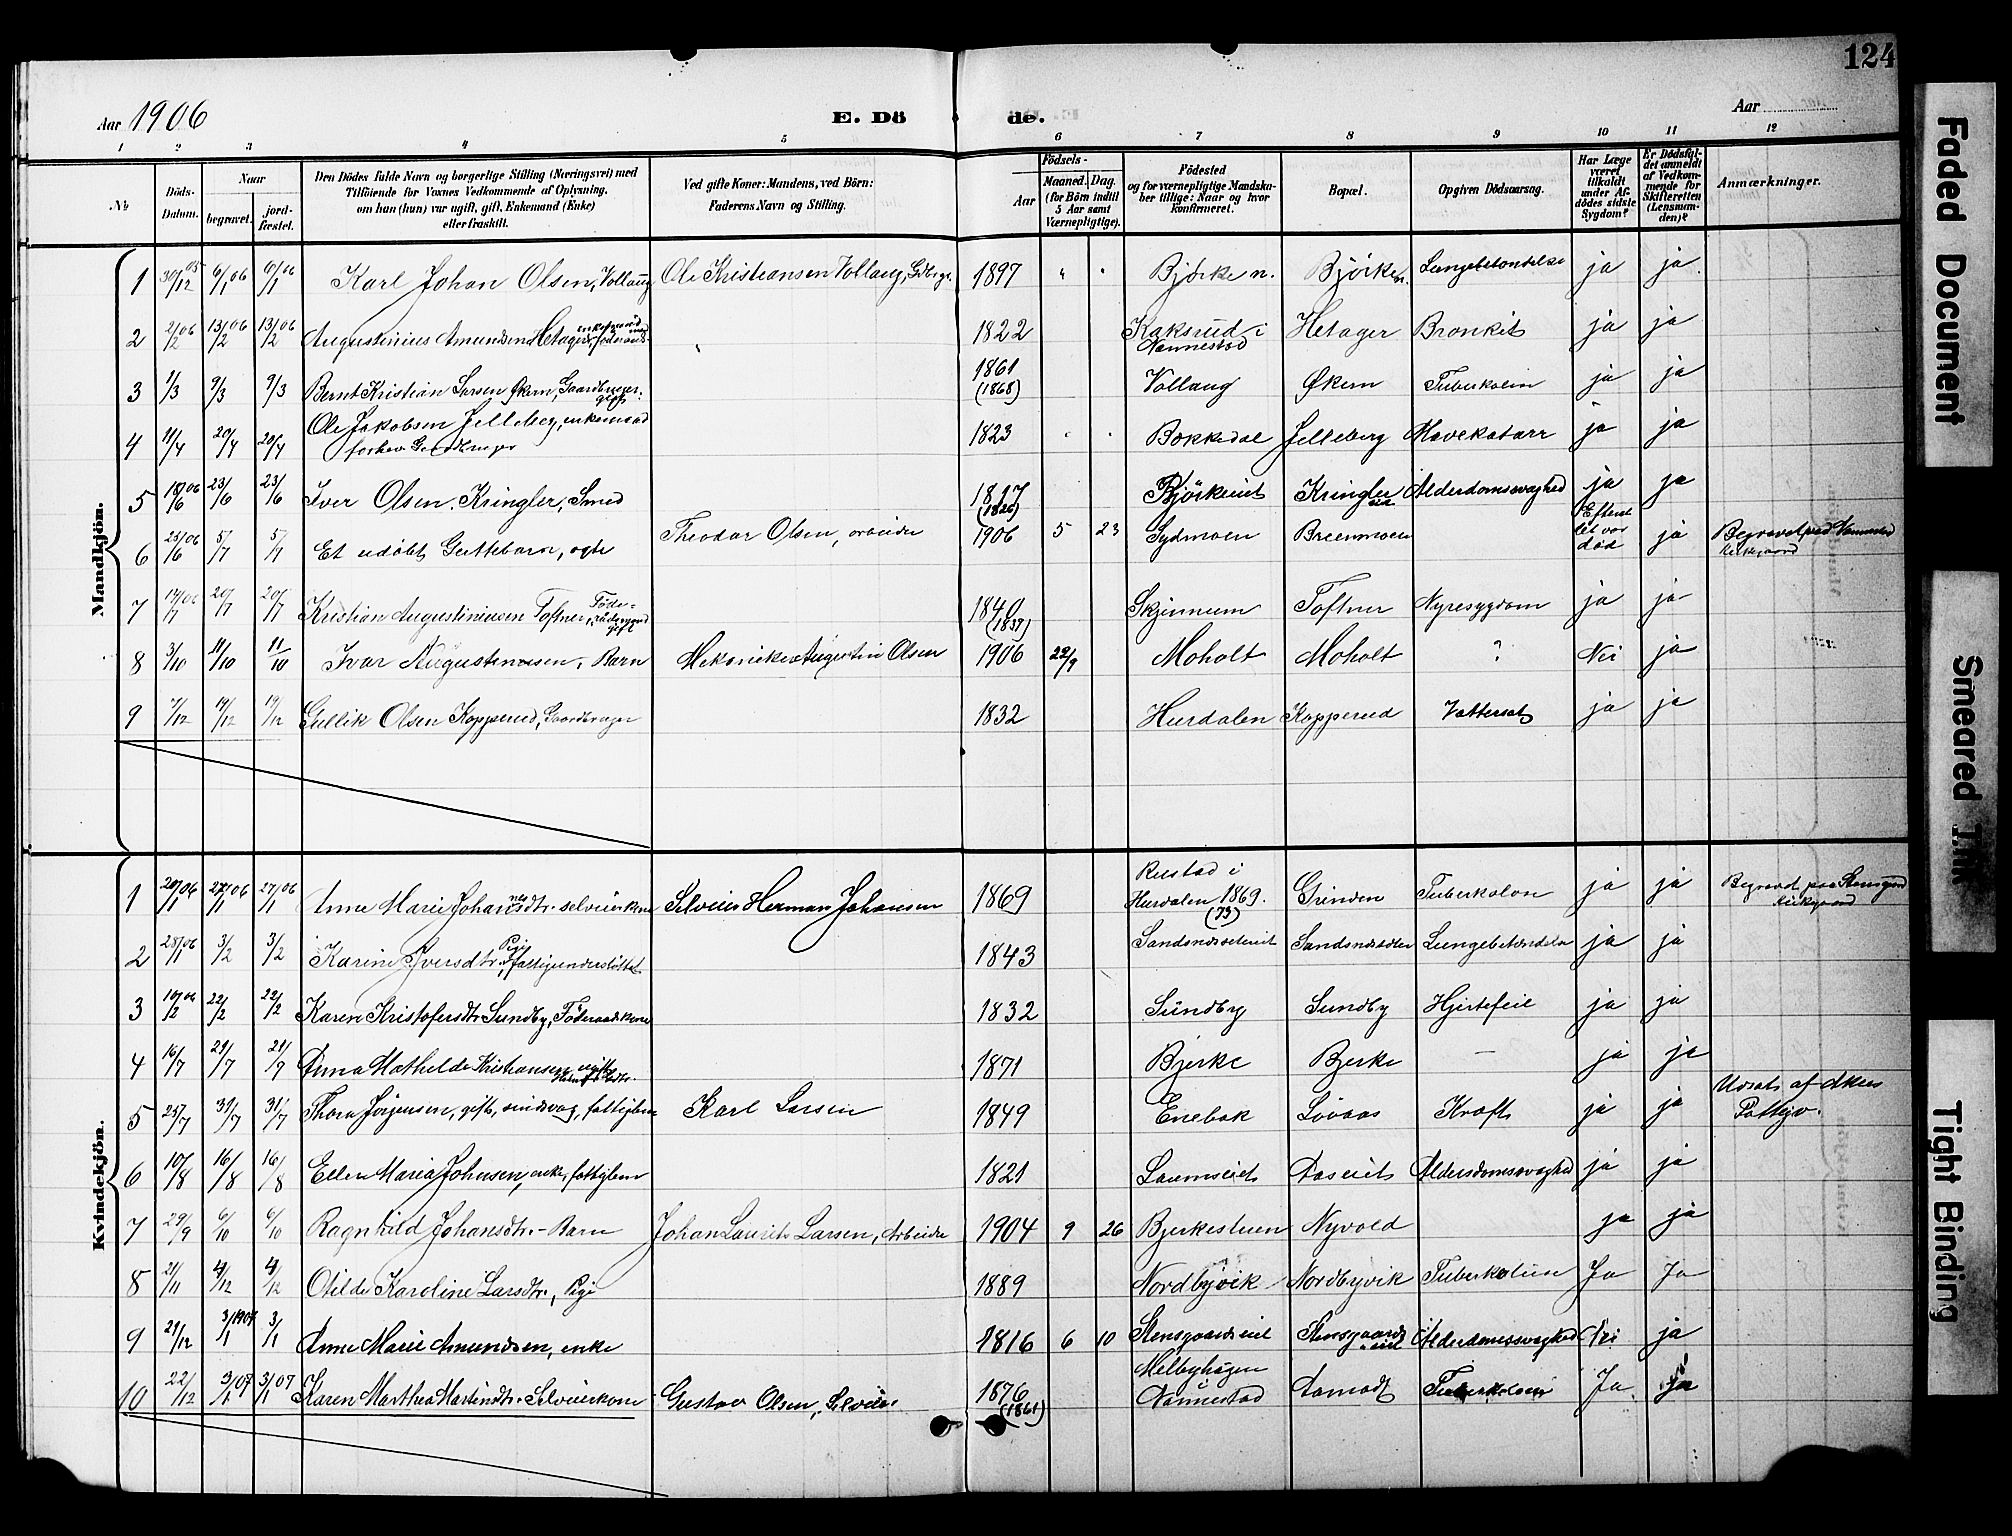 124
Aar 1906 E. Döde. Aar
1 2 3 4 5 6 7 8 9 10 11 12
No
Döds-Datum.
Naar begravet. jordfæstet.
Den Dödes fulde Navn og borgerlige Stilling (Næringsvei) med Tilföiende för Voxnes Vedkommende af Oplysning, om han (hun) var ugift, gift, Enkemand (Enke) eller fraskilt.
Ved gifte Koner: Mandens, ved Börn: Faderens Navn og Stilling.
Födsels-
Aar Maaned. Dag. (for Börn indtil 5 Aar samt Værnepligtige).
Födested og for værnepligtige Mandskaber tillige: Naar og hvor konfirmeret.
Bopæl.
Opgiven Dödsaarsag.
Har Læge været tilkaldt under Afdödes sidste Sygdom?
Er Dödsfaldet anmeldt af Vedkommende for Skifteretten (Lensmanden)?
Anmærkninger.
Mandkjön.
1 31/12 05 6/1 06 6/1 06 Karl Johan Olsen, Vollaug Ole Kristiansen Vollaug, Gdbrgr. 1897 " " Bjørke n. Bjørke n. Lungebetændelse ja ja
2 2/2 06 13/2 06 13/2 06 Augustinius Amundsen Hetager, enkemand 1822 Kaksrud i Nannestad Hetager Bronkit ja ja
3 1/3 9/3 9/3 Bernt Kristian Larsen Økern, Gaardbruger, gift 1861 (1868) Vollaug Økern Tuberkolin ja ja
4 11/4 20/4 20/4 Ole Jakobsen Jelleberg, enkemand forhen Gardbruger 1823 " " Bokkedal Jelleberg Mavekatarr ja ja
5 18/6 06 23/6 23/6 Iver Olsen Kringler, Smed 1827 (1826) Bjørkeeiet Kringler eie Alderdomssvaghed ja ja
6 25/6 06 5/7 5/7 Et udøbt Guttebarn, ægte Theodor Olsen, arbeider 1906 5 23 Sydmoen Breenmoen død ja Begravet ved Nannestad Kirkegaard
7 14/7 06 20/7 20/7 Kristian Augustiniusen Toftner, Føderaadsmand gift 1840 (1837) Skjønnum Toftner Nyresygdom ja ja
8 3/10 11/10 11/10 Ivar Augustinusen, Barn Mekaniker Augustin Olsen 1906 22/9 Moholt Moholt ? Nei ja
9 7/12 19/12 19/12 Gullik Olsen Kopperud, Gaardbruger 1832 Hurdalen Kopperud Vattersot ja ja
Kvindekjön.
1 20/1 06 27/1 06 27/1 06 Anne Marie Johannesdtr. selveierkone Selveier Herman Johansen 1869 Rustad i Hurdalen 1869. (73) Grinden Tuberkolon ja ja Begravet paa Stensgaard Kirkegaard
2 25/1 06 3/2 3/2 Karine Iversdtr. Pige, fattigunderstøttet 1843 Sandsnæseiet Lungebetændelse ja ja
3 10/2 06 22/2 22/2 Karen Kristofersdtr. Sundby, Føderaadskone 1832 Sundby Sundby Hjertefeil ja ja
4 16/7 21/7 21/7 Anna Mathilde Kristiansen ugift 1871 Bjerke Bjerke – ja ja
5 25/7 31/7 31/7 Thora Jørgensen, gift, sindsvag, fattiglem Karl Larsen 1849 Enebak Løvaas Kræft ja ja Udsat af Akers Fattigv.
6 10/8 16/8 16/8 Ellen Maria Johnsen, enke, fattiglem 1821 Laumseiet Aaseiet Aldersdomssvaghed ja ja
7 29/9 6/10 6/10 Ragnhild Johansdtr. – Barn Johan Laurits Larsen, Arbeider 1904 9 26 Bjerkestuen Nyvold ja ja
8 21/11 4/12 4/12 Otilde Karoline Larsdtr., Pige 1889 Nordbyvik Nordbyvik Tuberkulin Ja Ja
9 21/12 3/1 1907 3/1 Anne Marie Amundsen, enke 1816 6 10 Stensgaardseiet Stensgaardseiet Alderdomssvaghed Nei ja
10 22/12 3/1 07 3/1 07 Karen Marthea Martinsdtr. Selveierkone Gustav Olsen, Selveier 1876 (1861) Melbyhagen Nannestad Aamodt Tuberkolose Ja ja
Faded Document
Smeared Ink
Tight Binding